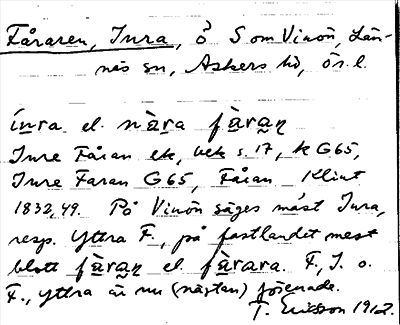 Fåraren, Inra, ö S om Vinön, Län-
näs sn, Askers hd, Ör. l.
ínra el. nàra fàran
Inre Fåran ek, bek s. 17, k G65,
Inre Faran G65, Fåran Klint
1832, 49. På Vinön säges mäst Inra,
resp. Yttra F., på fastlandet mest
blott fàran el. fàrara. F., I. o.
F., yttra är nu (nästan) förenade.
T. Ericsson 1912.